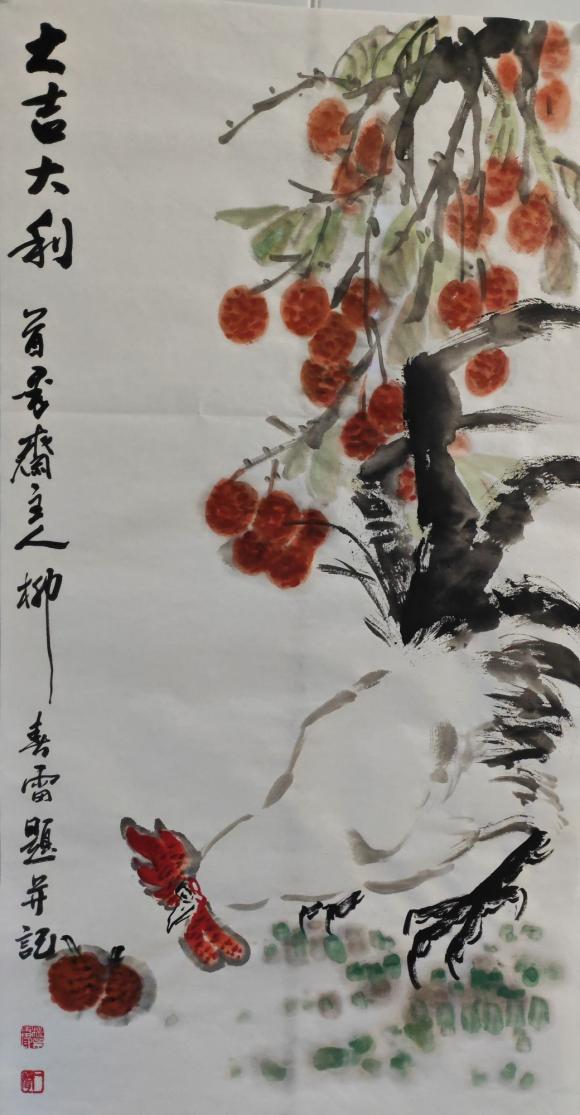 大吉大利 齋主人 柳春雷題并記